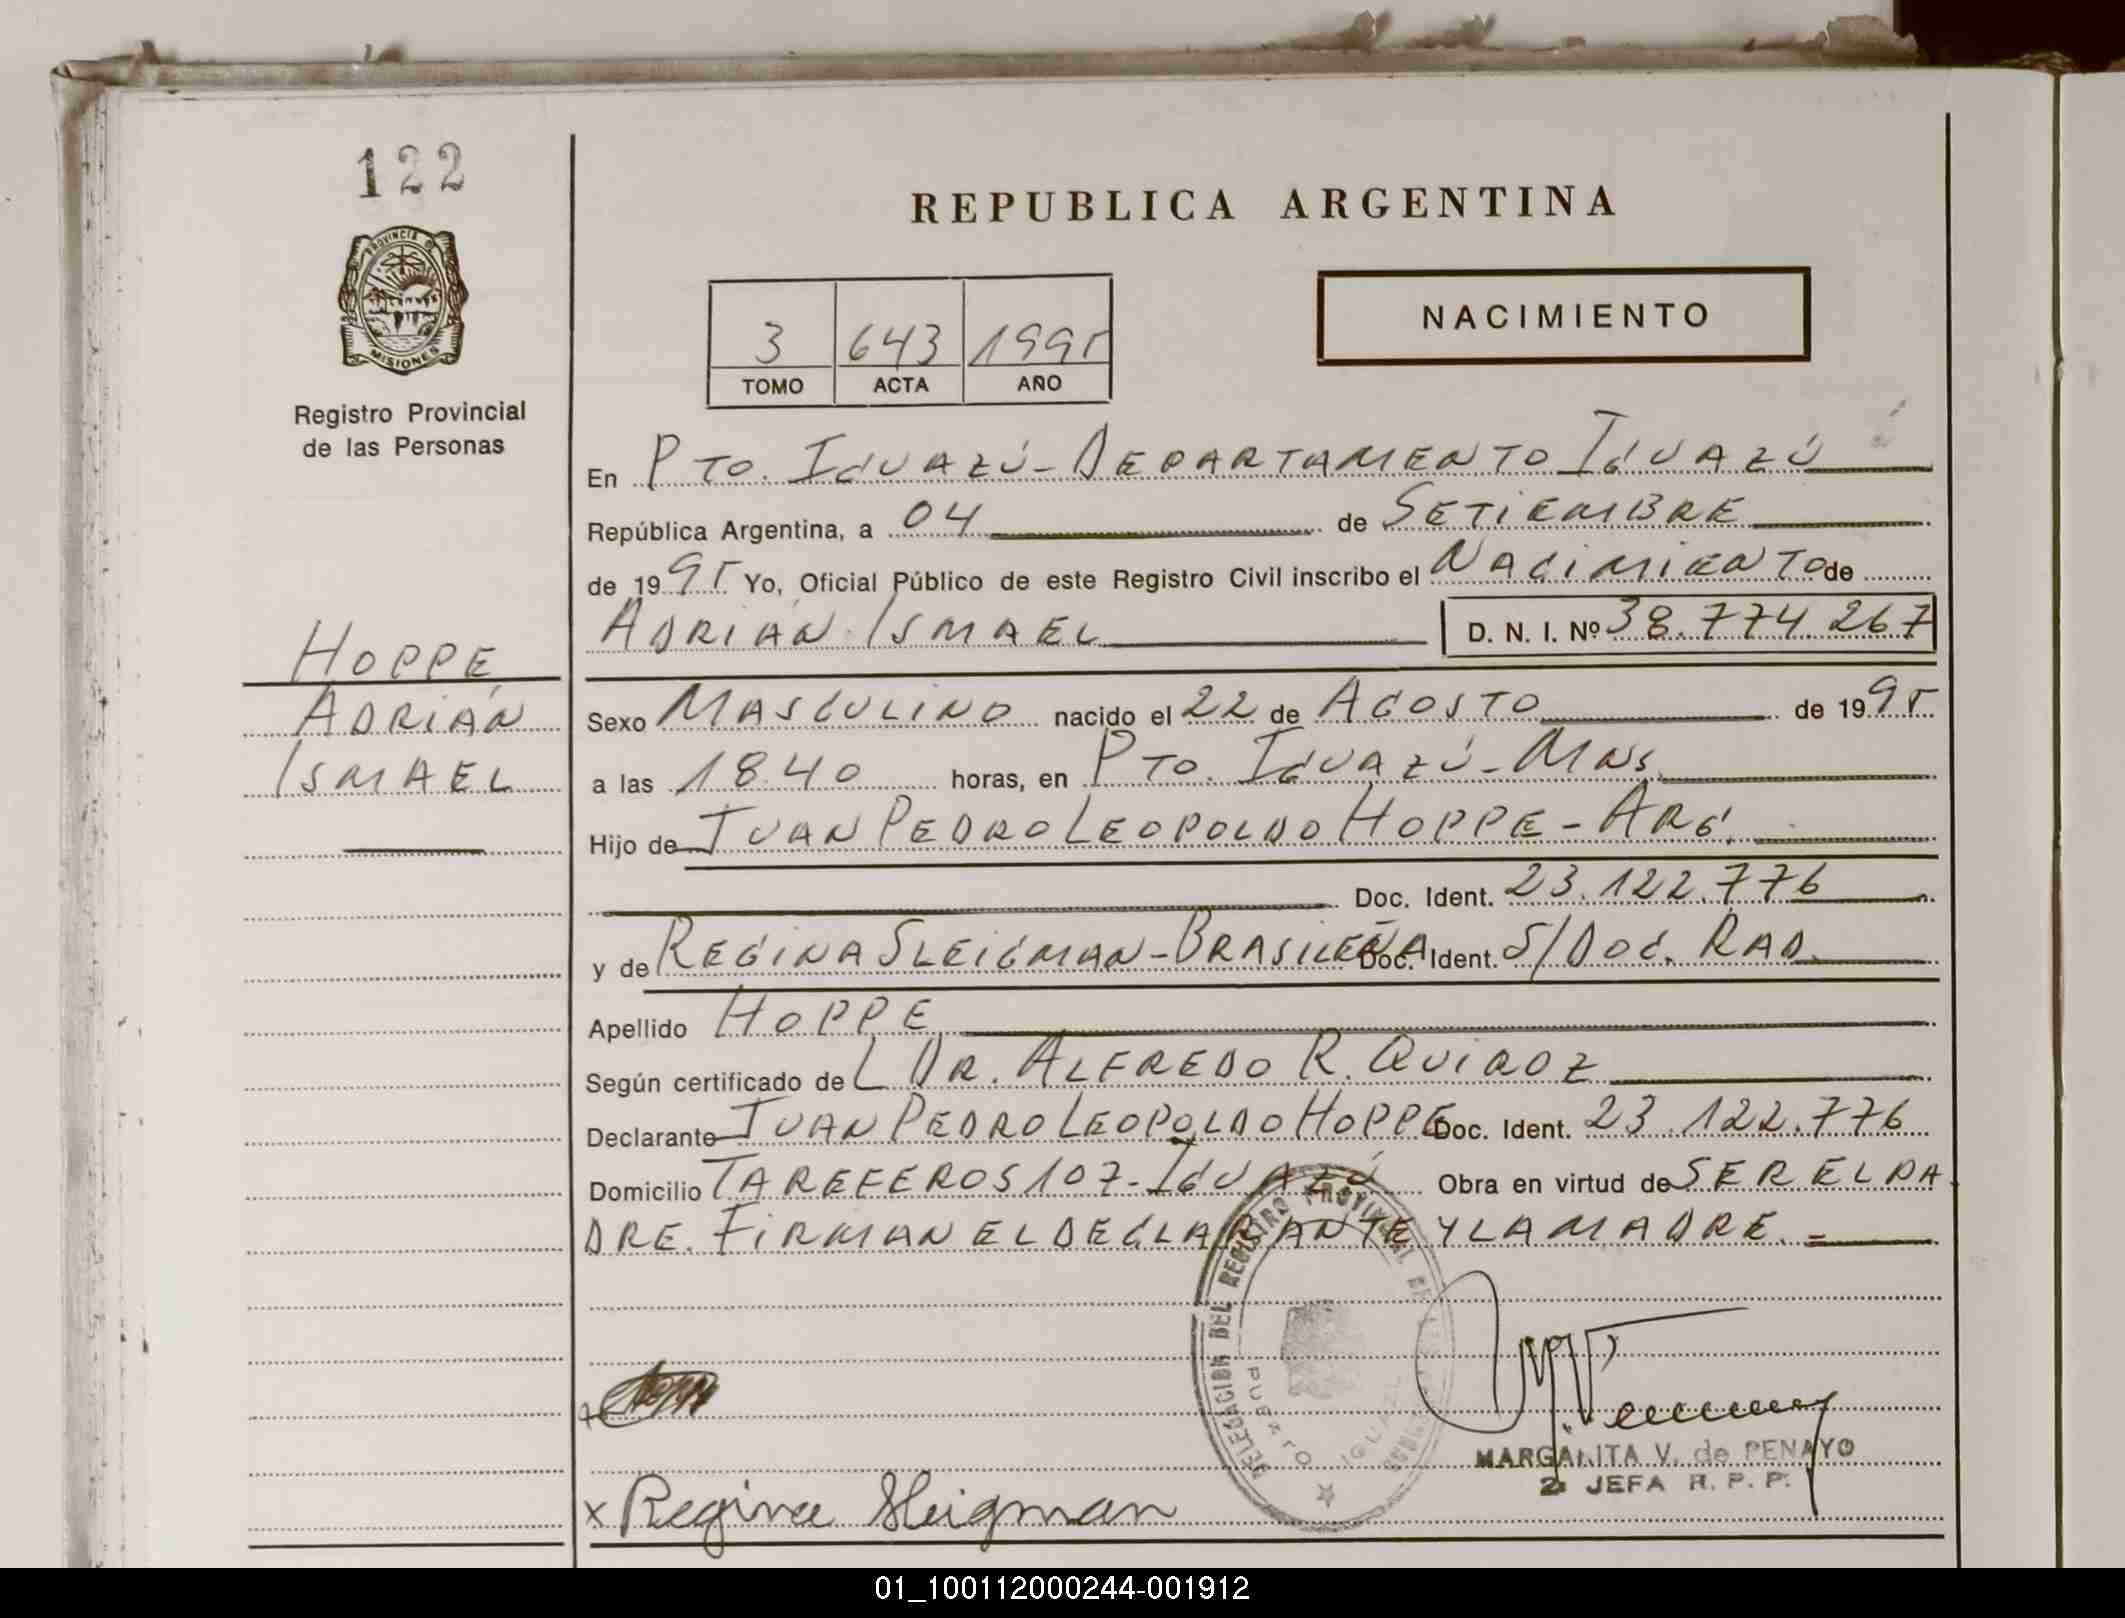 122
REPUBLICA ARGENTINA
PROVINCIA DE
MISIONES
Registro Provincial
de las Personas
3 643 1995
TOMO ACTA AÑO
NACIMIENTO
En PTO. IGUAZÚ - DEPARTAMENTO IGUAZÚ
República Argentina, a 04 de SETIEMBRE
de 1995 Yo, Oficial Público de este Registro Civil inscribo el NACIMIENTO de
ADRIÁN ISMAEL D. N. I. Nº 38.774.267
HOPPE
ADRIÁN
ISMAEL
Sexo MASCULINO nacido el 22 de AGOSTO de 1995
a las 18.40 horas, en PTO. IGUAZÚ - MNS.
Hijo de JUAN PEDRO LEOPOLDO HOPPE - ARG.
Doc. Ident. 23.122.776
y de REGINA SLEIGMAN - BRASILEÑA Doc. Ident. S/DOC. RAD.
Apellido HOPPE
Según certificado de L DR. ALFREDO R. QUIROZ
Declarante JUAN PEDRO LEOPOLDO HOPPE Doc. Ident. 23.122.776
Domicilio TAREFEROS 107 - IGUAZÚ Obra en virtud de SER EL PA
DRE. FIRMAN EL DECLARANTE Y LA MADRE. =
DELEGACION DEL REGISTRO PROVINCIAL DE LAS PERSONAS
PUERTO IGUAZU
MARGARITA V. de PENAYO
2ª JEFA R. P. P.
x Regina Sleigman
01_100112000244-001912